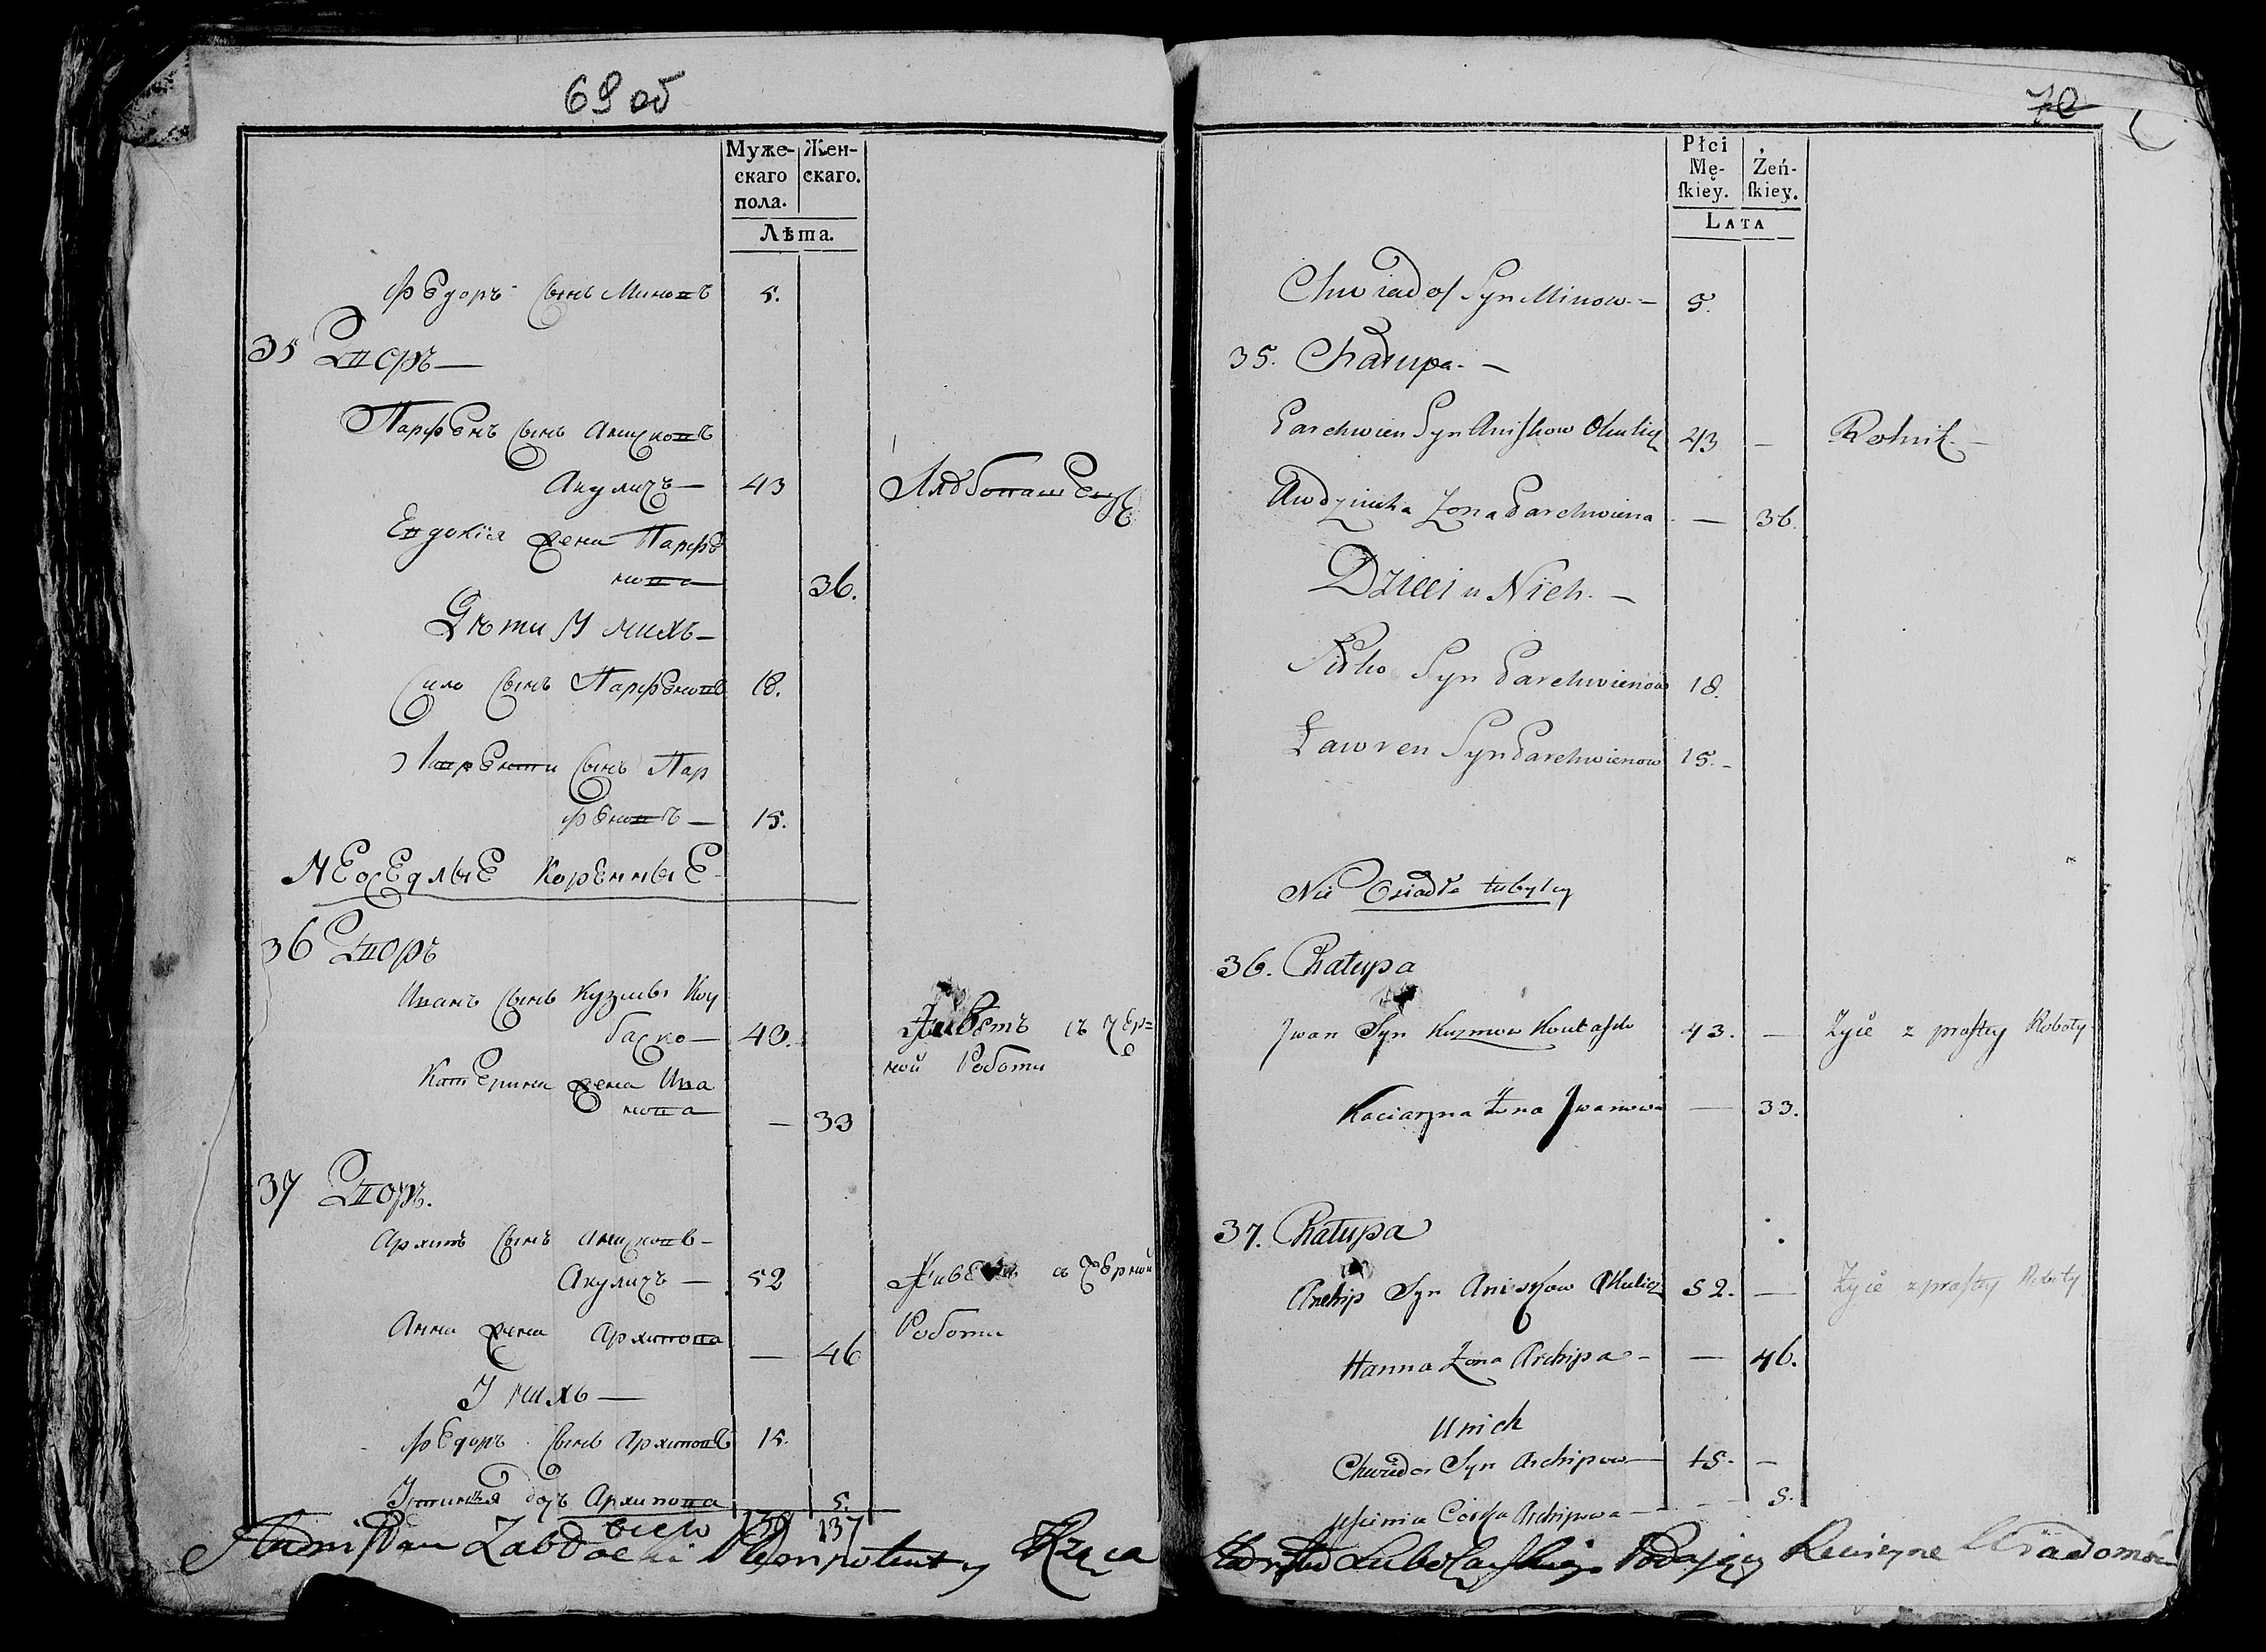 69 об
Муже-
скаго
пола.
Жен-
скаго.
Лѣта.
Федоръ Сынъ Миновъ 5.
35 Дворъ —
Парфенъ Сынъ Анисковъ
Акуличъ — 43 Хлѣбопашецъ
Евдокія жена Парфе
нова 36.
Дѣти У нихъ —
Сило Сынъ Парфеновъ 18.
Лаврентіи Сынъ Пар
феновъ — 15.
НЕосЕдлыЕ КорЕнныЕ
36 Дворъ
Иванъ Сынъ Кузмы Коу
баско — 43. Живетъ съ чер=
ной Роботы
КатЕрина жена Ива
нова — 33
37 Дворъ.
Архипъ Сынъ Анисковъ —
Акуличъ — 52 Живетъ съ Черной
Анна жена Архипова — 46 Роботы
У нихъ —
Федоръ Сынъ Архиповъ 15.
Устинья дочь Архипова 5.
всего 137
Stanisław Zabłocki Plenipotent y Rządca
70
Płci
Mę-
ſkiey.
Żeń-
ſkiey.
LATA
Chwiador Syn Minow — 5.
35. Chałupa. —
Parchwien Syn Aniſkow Okulicz 43 — Rolnik. —
Awdziuchа Żona Parchwiena — 36.
Dzieci u Nich. —
Siłko Syn Parchwienow 18.
Ławren Syn Parchwienow 15. —
Nie Osiadłe tubylcy
36. Chałupa
Jwan Syn Kuzmow Koubaſko 43. — Zyie z proſtey Roboty
Kaciaryna Żona Jwanowa — 33.
37. Chałupa
Archip Syn Aniskow Okulicz 52. — Zyie z proſtey Roboty
Hanna Żona Archipa — — 46.
U nich
Chwiedor Syn Archipow — 15. —
Uſcinia Córka Archipowa — — 5.
Podaſący Rewizyne Wiadomości